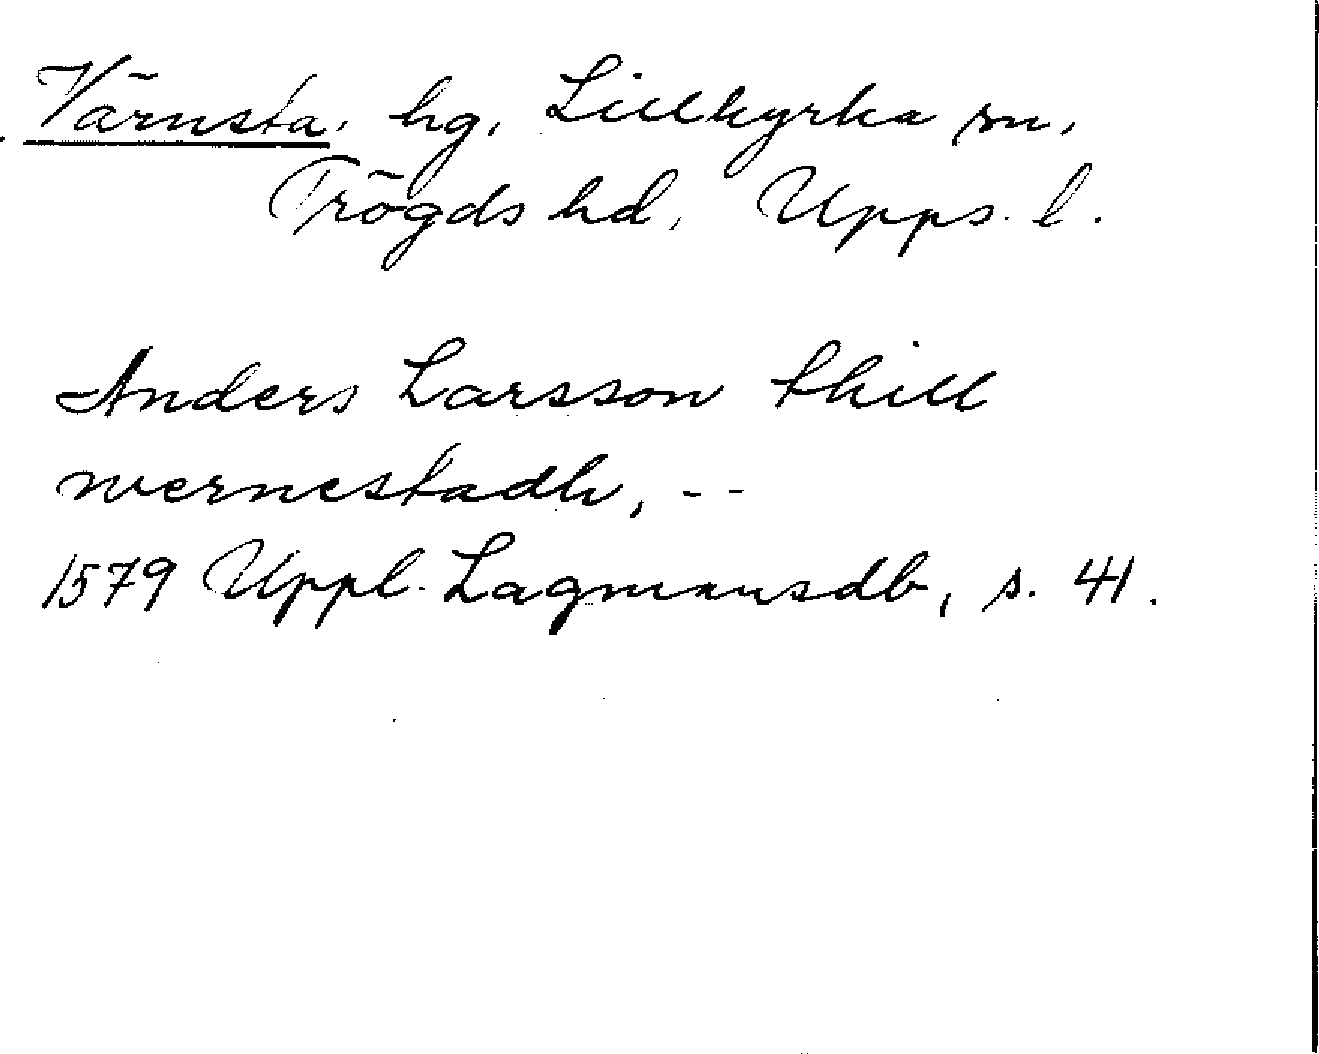 Värnsta, hg, Lillkyrka sn,
Trögds hd, Upps. l.
Anders Larsson thill
wernestadh, - -
1579 Uppl. Lagmansdb, s. 41.